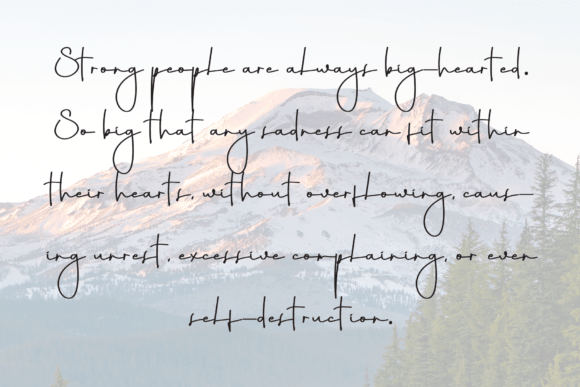 Strong people are always big-hearted.
So big that any sadness can fit within
their hearts, without overflowing, caus-
ing unrest, excessive complaining, or even
self-destruction.